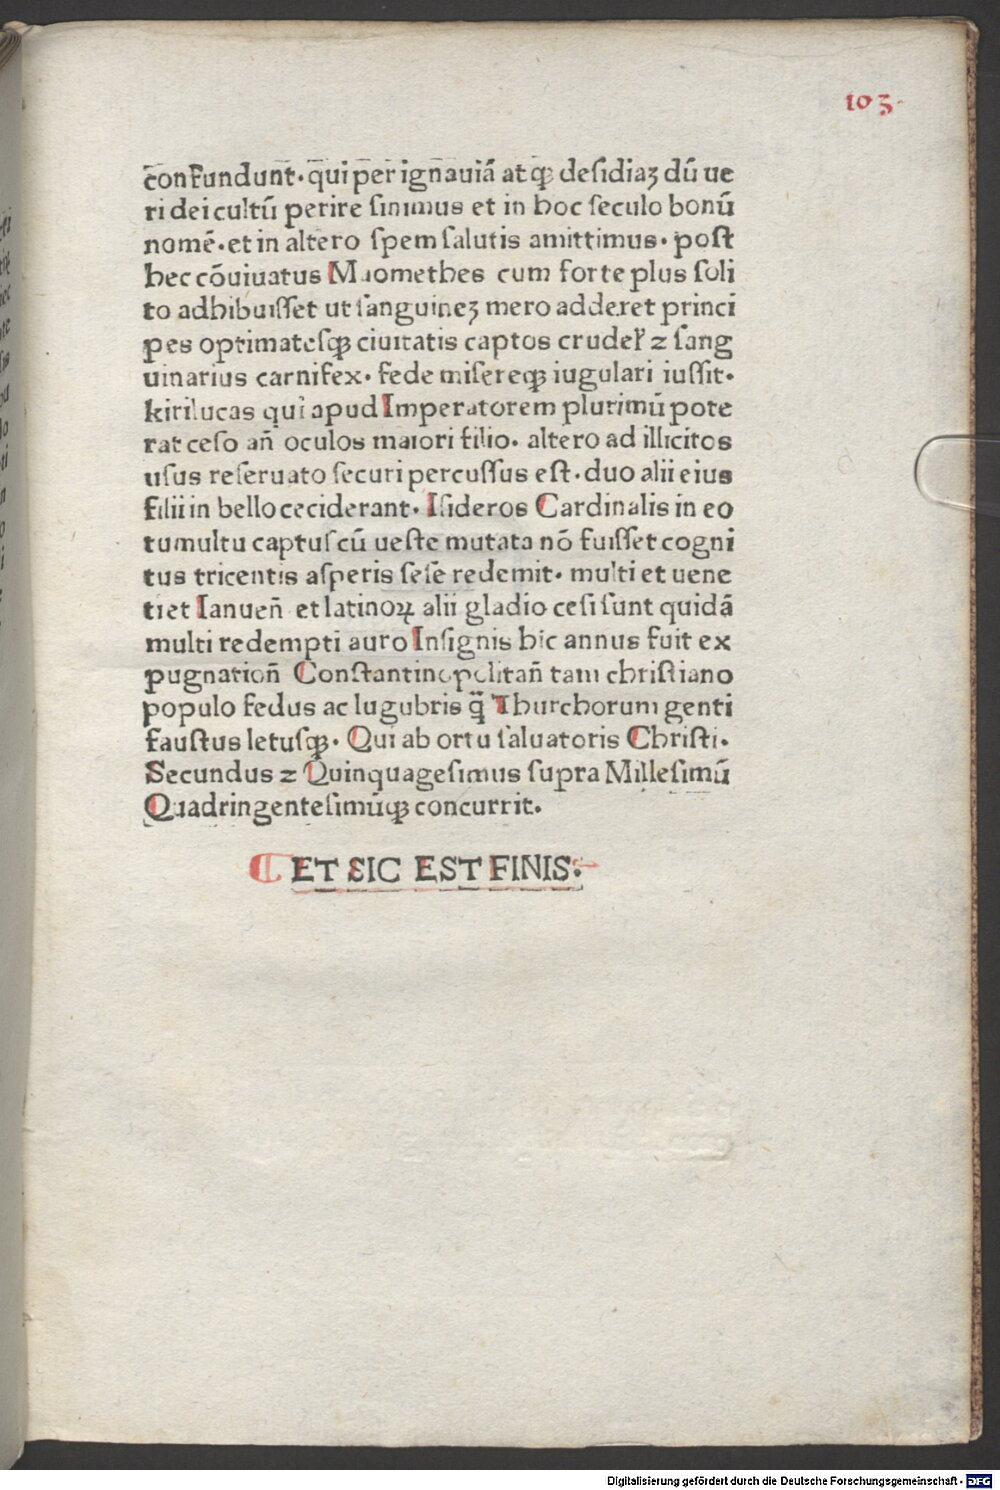 103.
confundunt. qui per ignauiā atqꝫ desidiaꝫ dū ue
ri dei cultū perire sinimus et in hoc seculo bonū
nomē. et in altero spem salutis amittimus. post
hec cōuiuatus Maomethes cum forte plus soli
to adhibuisset ut sanguineꝫ mero adderet princi
pes optimatesqꝫ ciuitatis captos crudel̛ ⁊ sang
uinarius carnifex. fede misereqꝫ iugulari iussit.
kirilucas qui apud Imperatorem plurimū pote
rat ceso an̄ oculos maiori filio. altero ad illicitos
usus reseruato securi percussus est. duo alii eius
filii in bello ceciderant. Isideros Cardinalis in eo
tumultu captus cū ueste mutata nō fuisset cogni
tus tricentis asperis sese redemit. multi et uene
ti et Ianuen̄ et latinoꝝ alii gladio cesi sunt quidā
multi redempti auro Insignis hic annus fuit ex
pugnation̄ Constantinopolitan̄ tam christiano
populo fedus ac lugubris q̄̈ Thurchorum genti
faustus letusqꝫ. Qui ab ortu saluatoris Christi.
Secundus ⁊ Quinquagesimus supra Millesimū
Quadringentesimūqꝫ concurrit.
ET SIC EST FINIS:
Digitalisierung gefördert durch die Deutsche Forschungsgemeinschaft - DFG